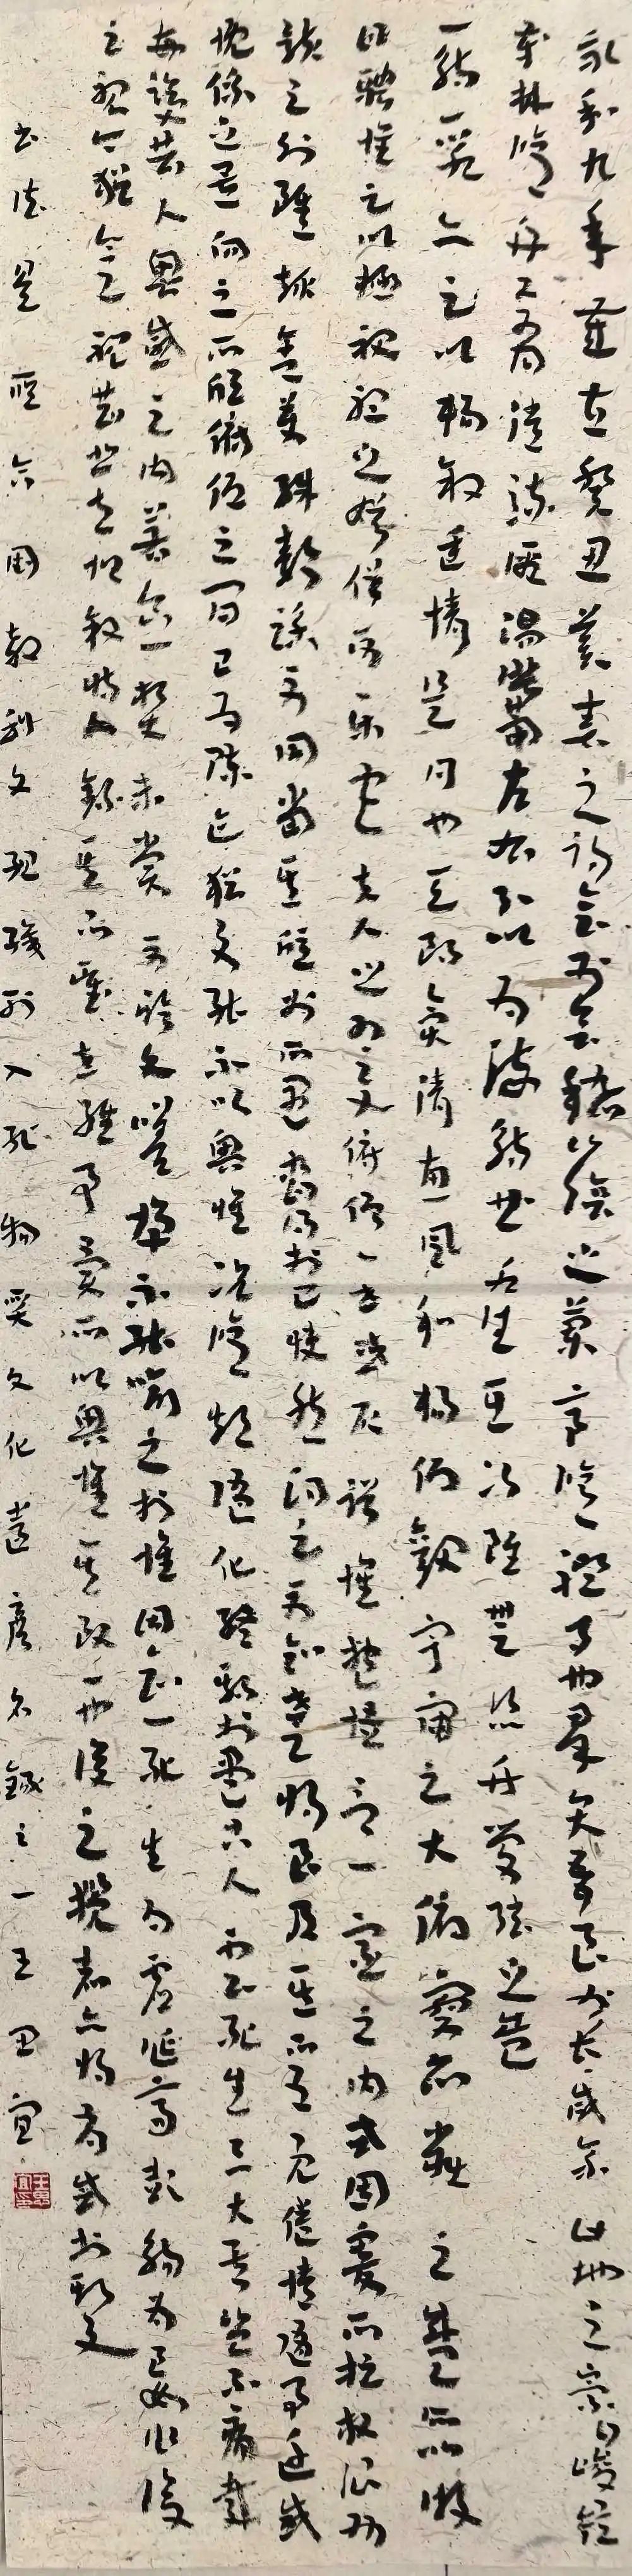 永和九年歲在癸丑暮春之初會於會稽山陰之蘭亭脩禊事也群賢畢至少長咸集此地有崇山峻領
茂林脩竹又有清流激湍映帶左右引以為流觴曲水列坐其次雖無絲竹管弦之盛
一觴一詠亦足以暢敘幽情是日也天朗氣清惠風和暢仰觀宇宙之大俯察品類之盛所以遊
目騁懷足以極視聽之娛信可樂也夫人之相與俯仰一世或取諸懷抱悟言一室之內或因寄所托放浪形
骸之外雖趣舍萬殊靜躁不同當其欣於所遇暫得於己快然自足不知老之將至及其所之既倦情隨事遷感
慨係之矣向之所欣俛仰之間已為陳迹猶不能不以興懷況脩短隨化終期於盡古人云死生亦大矣豈不痛哉
每覽昔人興感之由若合一契未嘗不臨文嗟悼不能喻之於懷固知一死生為虛誕齊彭殤為妄作後
之視今猶今之視昔悲夫故敘時人錄其所述雖世殊事異所以興懷其致一也後之攬者亦將有感於斯文
書法是聯合國教科文組織列入非物質文化遺產名錄之一王思宜
王思宜印